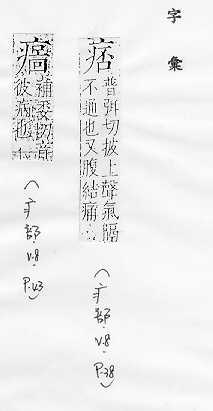 字 彙
痞
普弭切披上聲氣隔
不通也又腹結痛
(疒部.V.8.P.38)
補委切音
彼病也
(疒部.V.8.P.43)